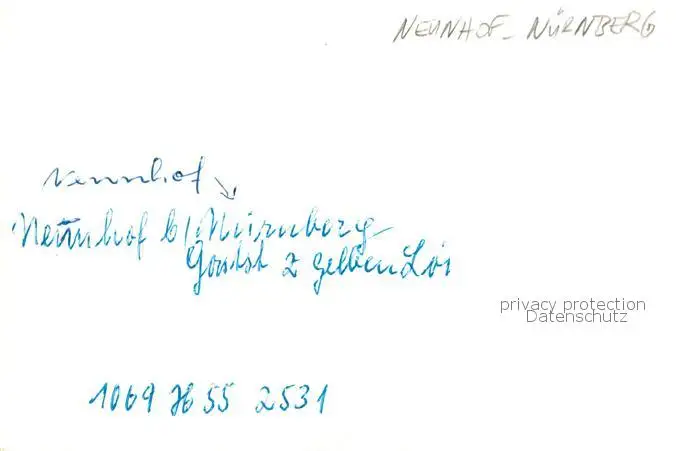 NEUNHOF - NÜRNBERG
Neunhof
Neunhof b/ Nürnberg
Gastst z gelben Lö
privacy protection
Datenschutz
1069 H 55 2531